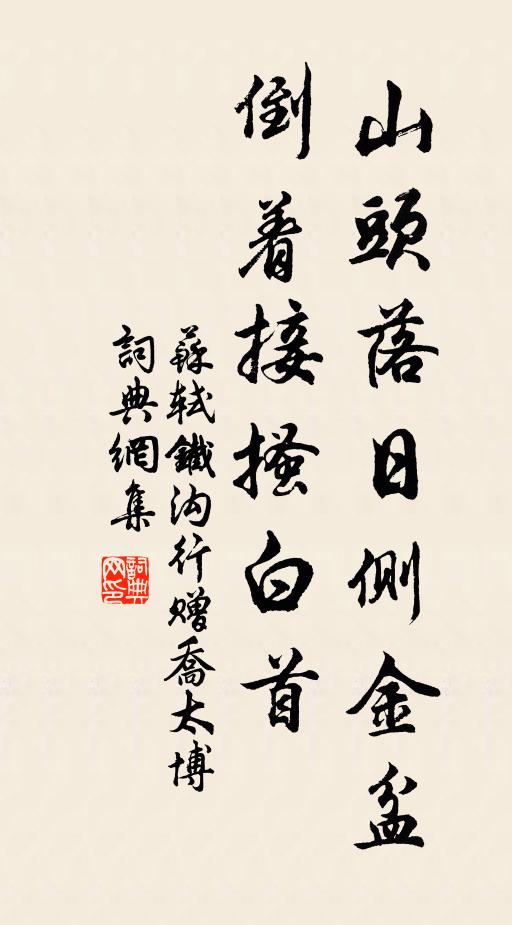 山頭落日側金盆
倒着接搔白首
蘇軾鐵沟行赠喬太博
詞典網集
詞典网印